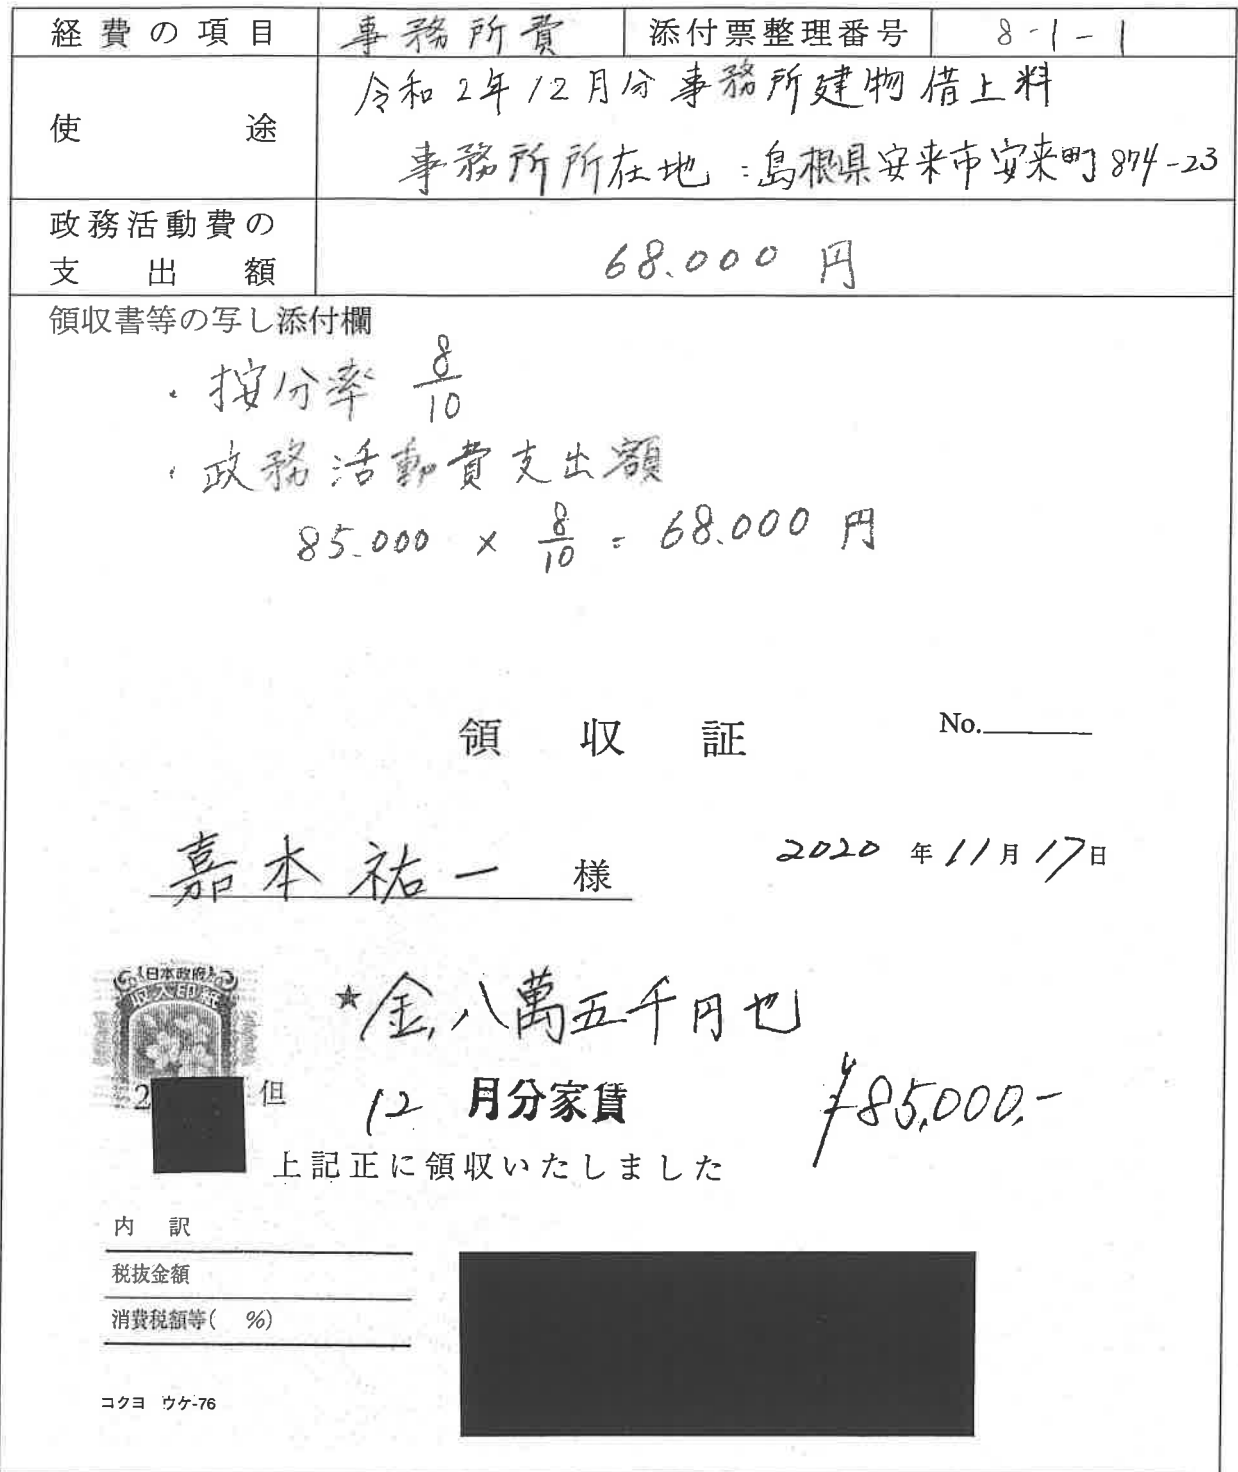 経費の項目 事務所費 添付票整理番号 8-1-1
使途 令和2年12月分事務所建物借上料
事務所所在地:島根県安来市安来町874-23
政務活動費の
支出額 68.000円
領収書等の写し添付欄
・按分率 8/10
・政務活動費支出額
85.000 × 8/10 = 68.000円
領収証 No.
嘉本祐一 様 2020年11月17日
日本政府
収入印紙
2
★金八萬五千円也
但 12月分家賃 ¥85,000.-
上記正に領収いたしました
内訳
税抜金額
消費税額等( %)
コクヨ ウケ-76